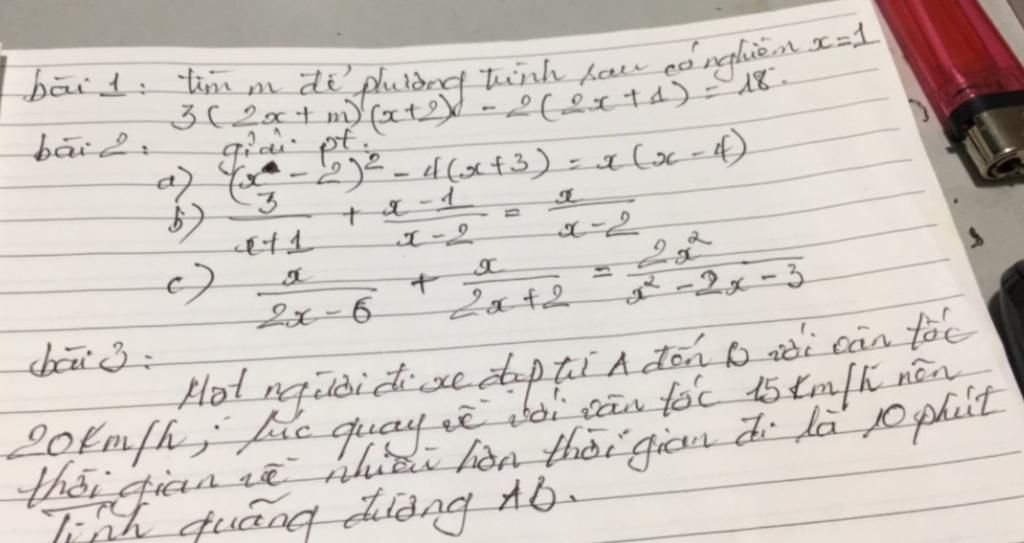 bài 1: tìm m để phương trình sau có nghiệm x=1
3(2x+m)(x+2) - 2(2x+1) = 18.
bài 2: giải pt:
a) (x - 2)² - 4(x+3) = x(x-4)
b) 3/(x+1) + (x-1)/(x-2) = x/(x-2)
c) x/(2x-6) + x/(2x+2) = 2x²/(x²-2x-3)
bài 3:
Một người đi xe đạp từ A đến B với vận tốc
20km/h; lúc quay về với vận tốc 15km/h nên
thời gian về nhiều hơn thời gian đi là 10 phút
Tính quãng đường AB.